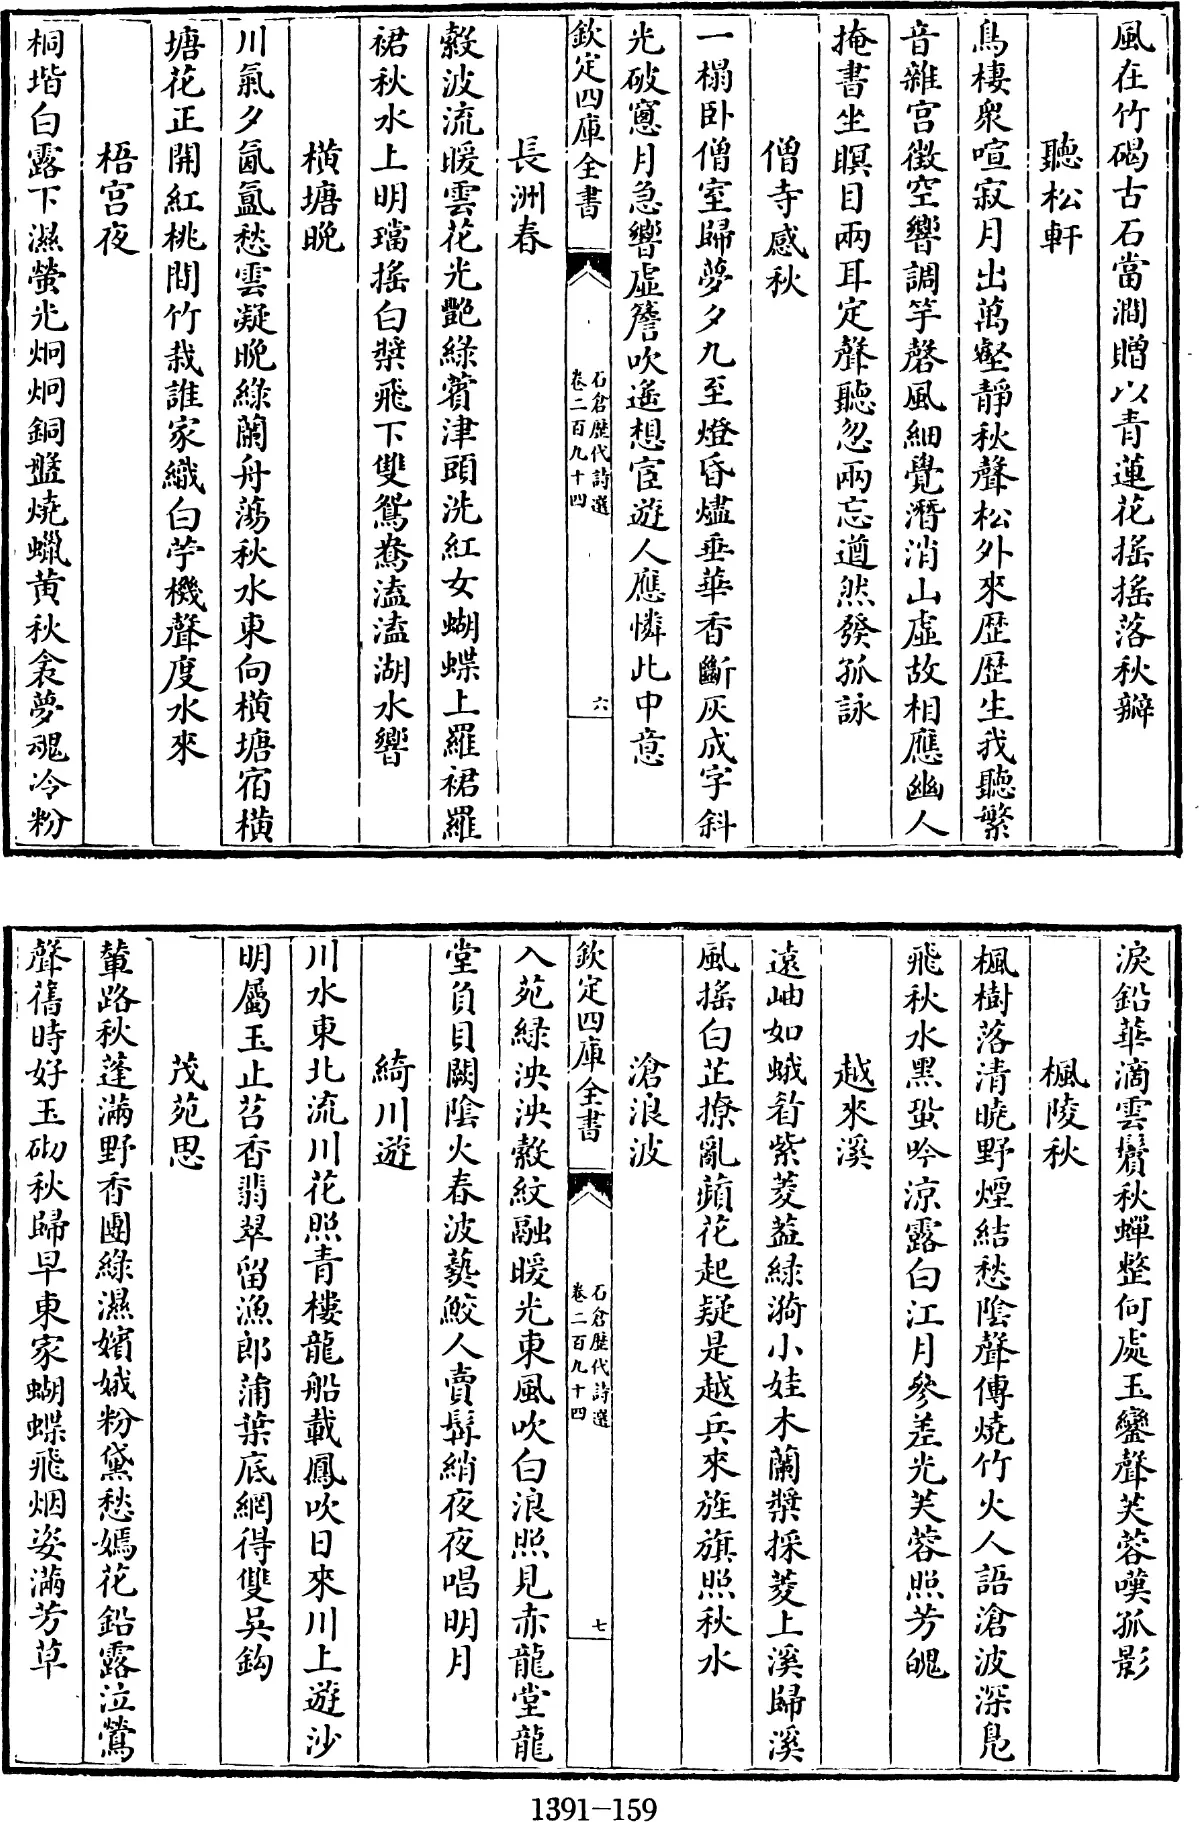 風在竹碣古石當澗贈以青蓮花搖搖落秋瓣
聽松軒
鳥棲衆喧寂月出萬壑靜秋聲松外來歴歴生我聽繁
音雜宮徵空響調竽磬風細覺潛消山虛故相應幽人
掩書坐瞑目兩耳定聲聽忽兩忘遒然發孤詠
僧寺感秋
一榻卧僧室歸夢夕九至燈昏燼垂華香斷灰成字斜
光破窻月急響虛簷吹遙想宦遊人應憐此中意
欽定四庫全書
石倉歴代詩選
卷二百九十四
六
長洲春
縠波流暖雲花光艷綠蘋津頭洗紅女蝴蝶上羅裙羅
裙秋水上明璫搖白槳飛下雙鴛鴦溘溘湖水響
橫塘晚
川氣夕氤氲愁雲凝晚綠蘭舟蕩秋水東向橫塘宿橫
塘花正開紅桃間竹栽誰家織白苧機聲度水來
梧宮夜
桐堦白露下濕螢光炯炯銅盤燒蠟黃秋衾夢魂冷粉
淚鉛華滴雲鬢秋蟬整何處玉鑾聲芙蓉嘆孤影
楓陵秋
楓樹落清曉野煙結愁陰聲傳燒竹火人語滄波深鳧
飛秋水黑蛩吟涼露白江月參差光芙蓉照芳魄
越來溪
遠岫如蛾看紫菱葢緑漪小娃木蘭槳採菱上溪歸溪
風搖白芷撩亂蘋花起疑是越兵來旌旗照秋水
滄浪波
欽定四庫全書
石倉歴代詩選
卷二百九十四
七
入苑緑泱泱縠紋融暖光東風吹白浪照見赤龍堂龍
堂負貝闕陰火春波爇鮫人賣髯綃夜夜唱明月
綺川遊
川水東北流川花照青樓龍船載鳳吹日來川上遊沙
明屬玉止苕香翡翠留漁郎蒲葉底網得雙吳鈎
茂苑思
輦路秋蓬滿野香團綠濕嬪娥粉黛愁嫣花鉛露泣鶯
聲舊時好玉砌秋歸早東家蝴蝶飛烟姿滿芳草
1391-159